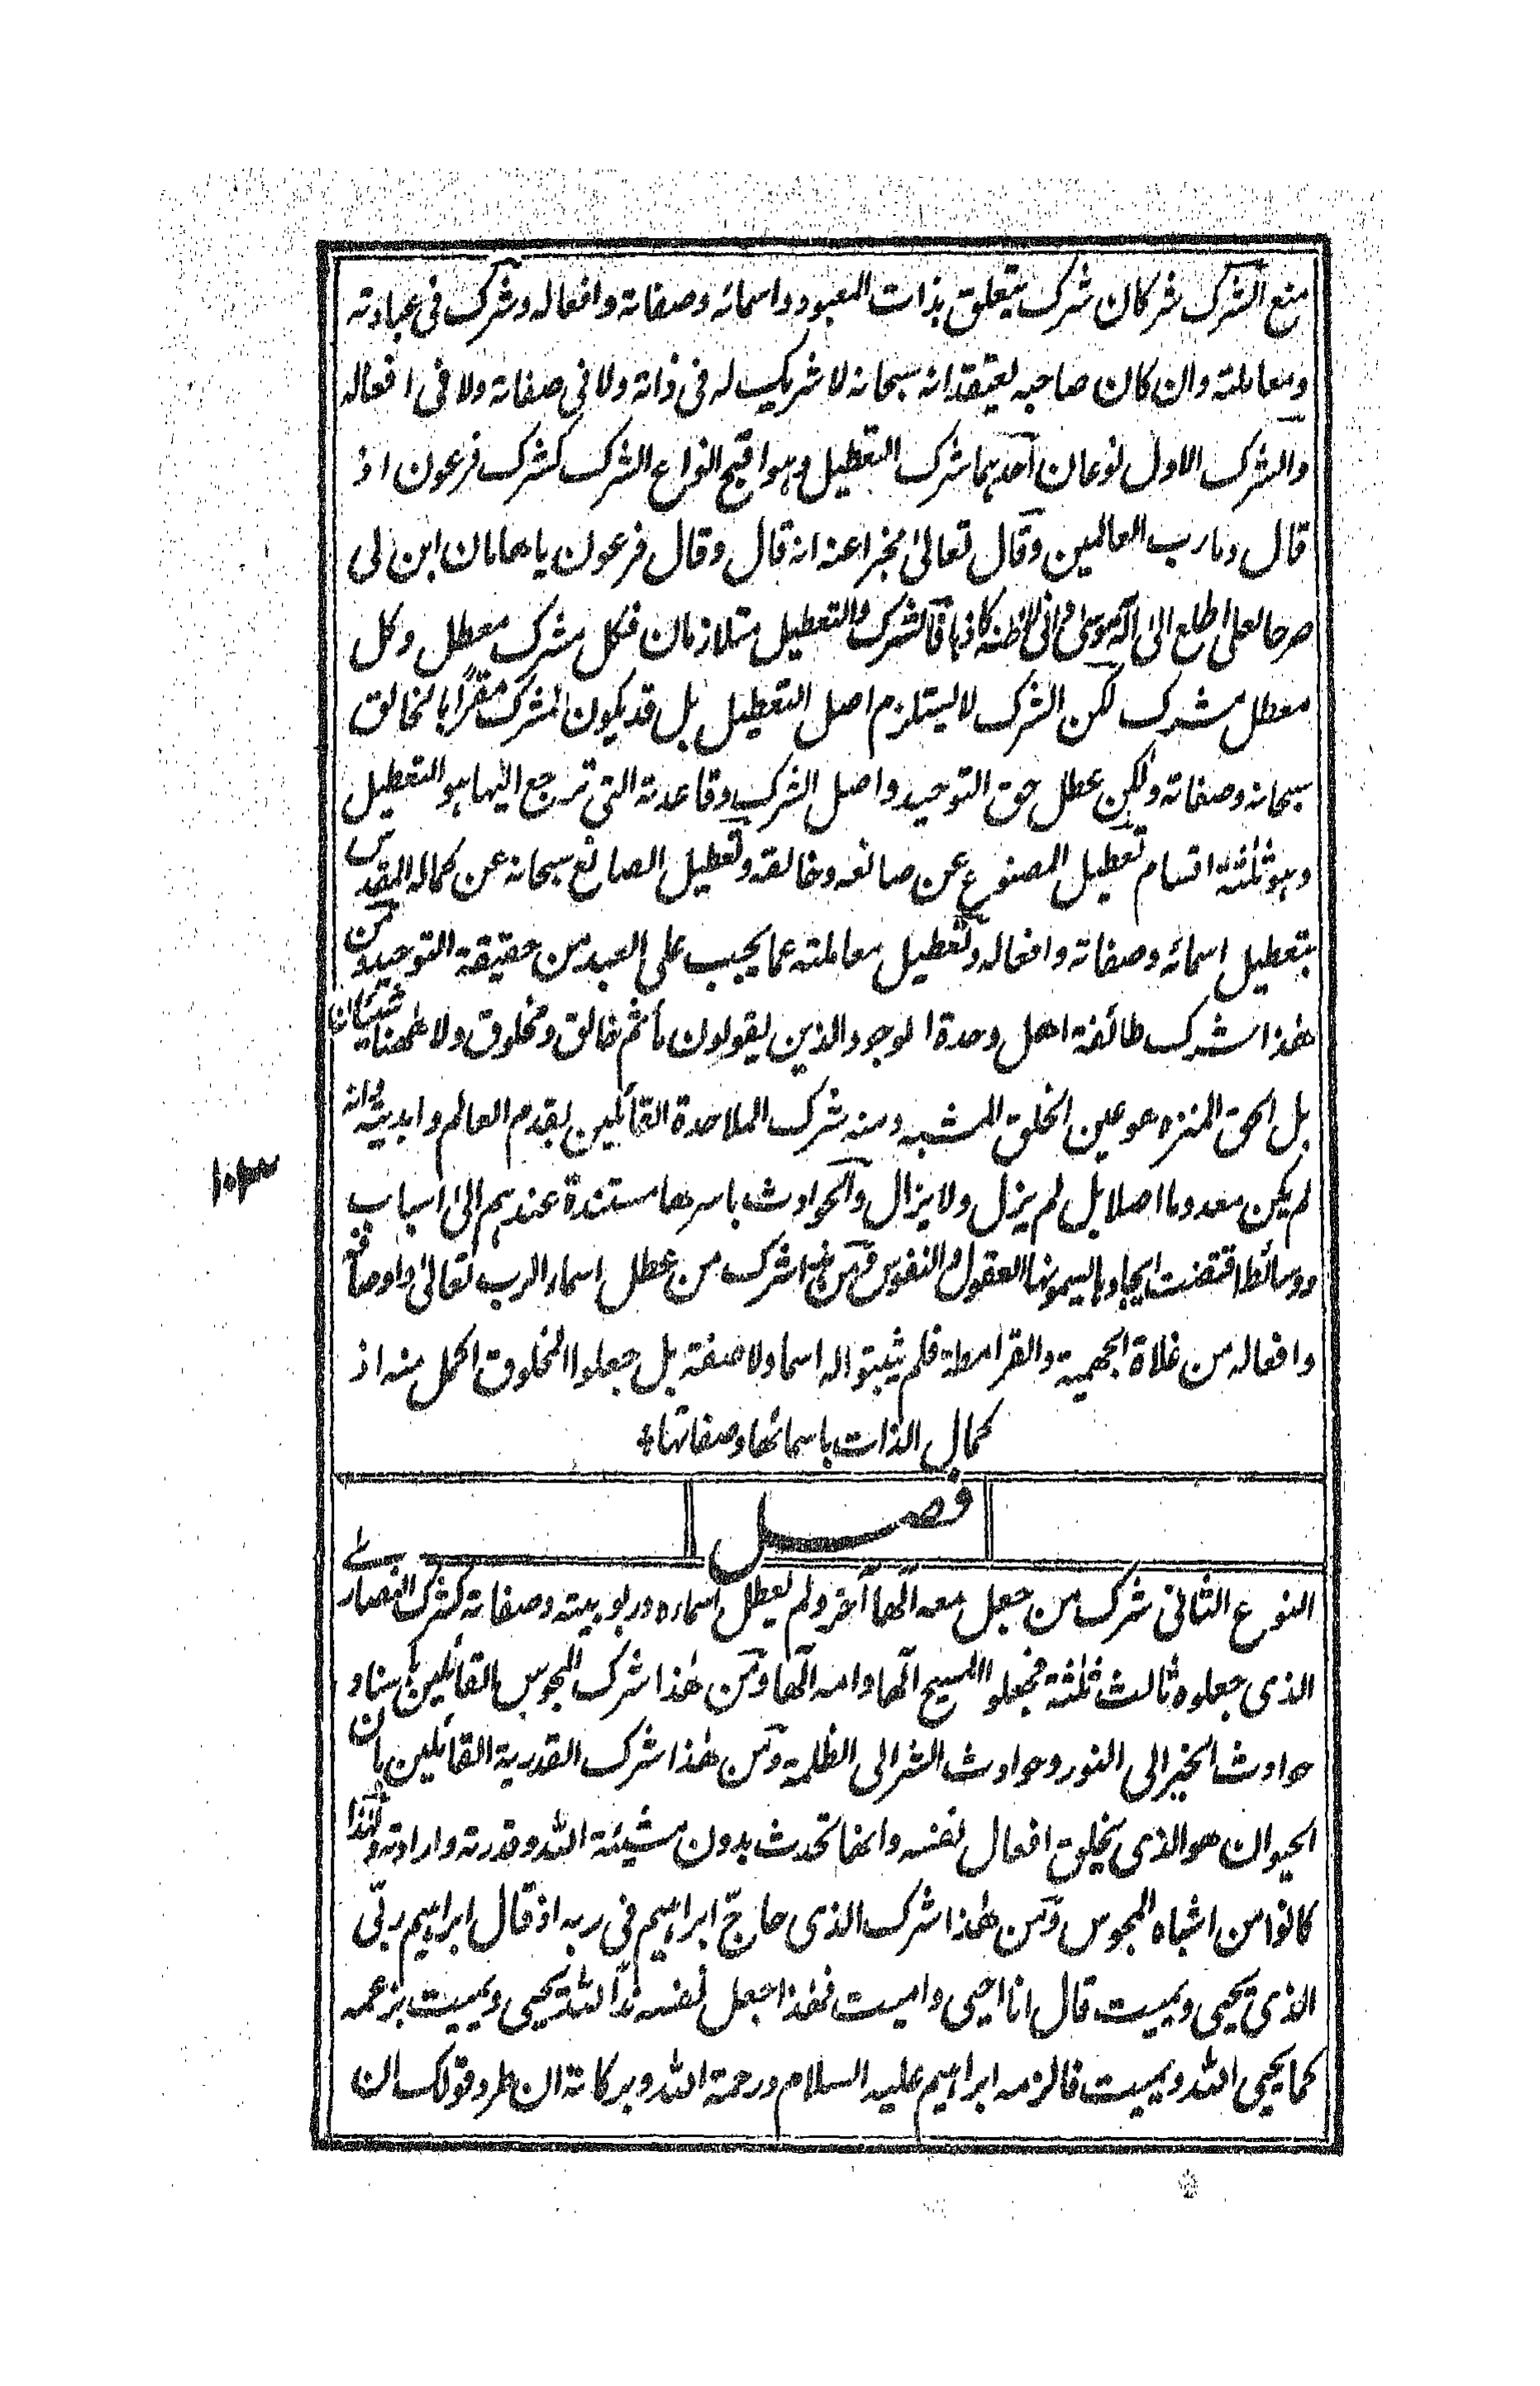 منع الشرك شركان شرك يتعلق بذات المعبود واسمائه وصفاته وافعاله وشرك فى عبادته
ومعاملته وان كان صاحبه يعتقد انه سبحانه لا شريك له فى ذاته ولا فى صفاته ولا فى افعاله
والشرك الاول نوعان احدهما شرك التعطيل وهو اقبح انواع الشرك كشرك فرعون اذ
قال وما رب العالمين وقال تعالىٰ مخبرا عنه انه قال وقال فرعون يا هامان ابن لى
صرحا لعلى اطلع الىٰ اله موسىٰ وانى لاظنه كاذبا فالشرك والتعطيل متلازمان فكل مشرك معطل وكل
معطل مشرك لكن الشرك لا يستلزم اصل التعطيل بل قد يكون المشرك مقرًا بالخالق
سبحانه وصفاته ولكن عطل حق التوحيد واصل الشرك وقاعدته التى ترجع اليها هو التعطيل
وهو ثلثة اقسام تعطيل المصنوع عن صانعه وخالقه وتعطيل الصانع سبحانه عن كماله المقدس
بتعطيل اسمائه وصفاته وافعاله وتعطيل معاملته عما يجب على العبد من حقيقة التوحيد ومن
هٰذا شرك طائفة اهل وحدة الوجود الذين يقولون ما ثم خالق ومخلوق ولا ههنا شيئان
بل الحق المنزه هو عين الخلق المشبه ومنه شرك الملاحدة القائلين بقدم العالم وابديته وانه
لم يكن معدوما اصلا بل لم يزل ولا يزال والحوادث باسرها مستندة عندهم الىٰ اسباب
ووسائط اقتضت ايجادها يسمونها العقول والنفوس ومن هٰذا شرك من عطل اسماء الرب تعالىٰ واوصافه
وافعاله من غلاة الجهمية والقرامطة فلم يثبتوا له اسما ولا صفة بل جعلوا المخلوق اكمل منه اذ
كمال الذات باسمائها وصفاتها
فصل
النوع الثانى شرك من جعل معه الٰها آخر ولم يعطل اسماءه وربوبيته وصفاته كشرك النصارىٰ
الذى جعلوه ثالث ثلٰثة فجعلوا المسيح الٰها وامه الٰها ومن هٰذا شرك المجوس القائلين باسناد
حوادث الخير الى النور وحوادث الشر الى الظلمة ومن هٰذا شرك القدرية القائلين بان
الحيوان هو الذى يخلق افعال نفسه وانها تحدث بدون مشيئة الله وقدرته وارادته ولهٰذا
كانوا من اشباه المجوس ومن هٰذا شرك الذى حاجّ ابراهيم فى ربه اذ قال ابراهيم ربّى
الذى يحيى ويميت قال انا احيى واميت فهٰذا جعل نفسه ندّا لله يحيى ويميت بزعمه
كما يحيى الله ويميت فالزمه ابراهيم عليه السلام ورحمة الله وبركاته ان طرد قولك ان
١٠٣